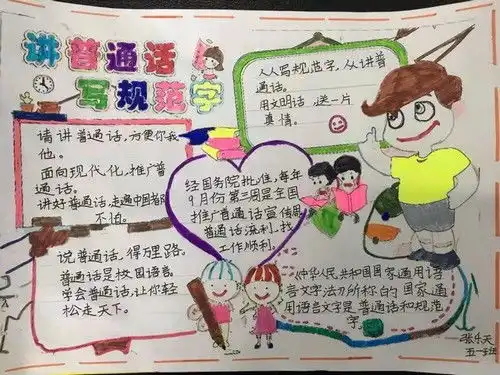 讲普通话
写规范字
人人写规范字，从讲普
通话。
用文明话 送一片
真情。
请讲普通话，方便你我
他。
面向现代化，推广普
通话。
讲好普通话，走遍中国都
不怕。
经国务院批准，每年
9月份第三周是全国
推广普通话宣传周
普通话流利，找
工作顺利。
说普通话，得万里路。
普通话是校园语言
学会普通话，让你轻
松走天下。
《中华人民共和国国家通用语
言文字法》所称的国家通
用语言文字是普通话和规范
字。
张乐天
五一班